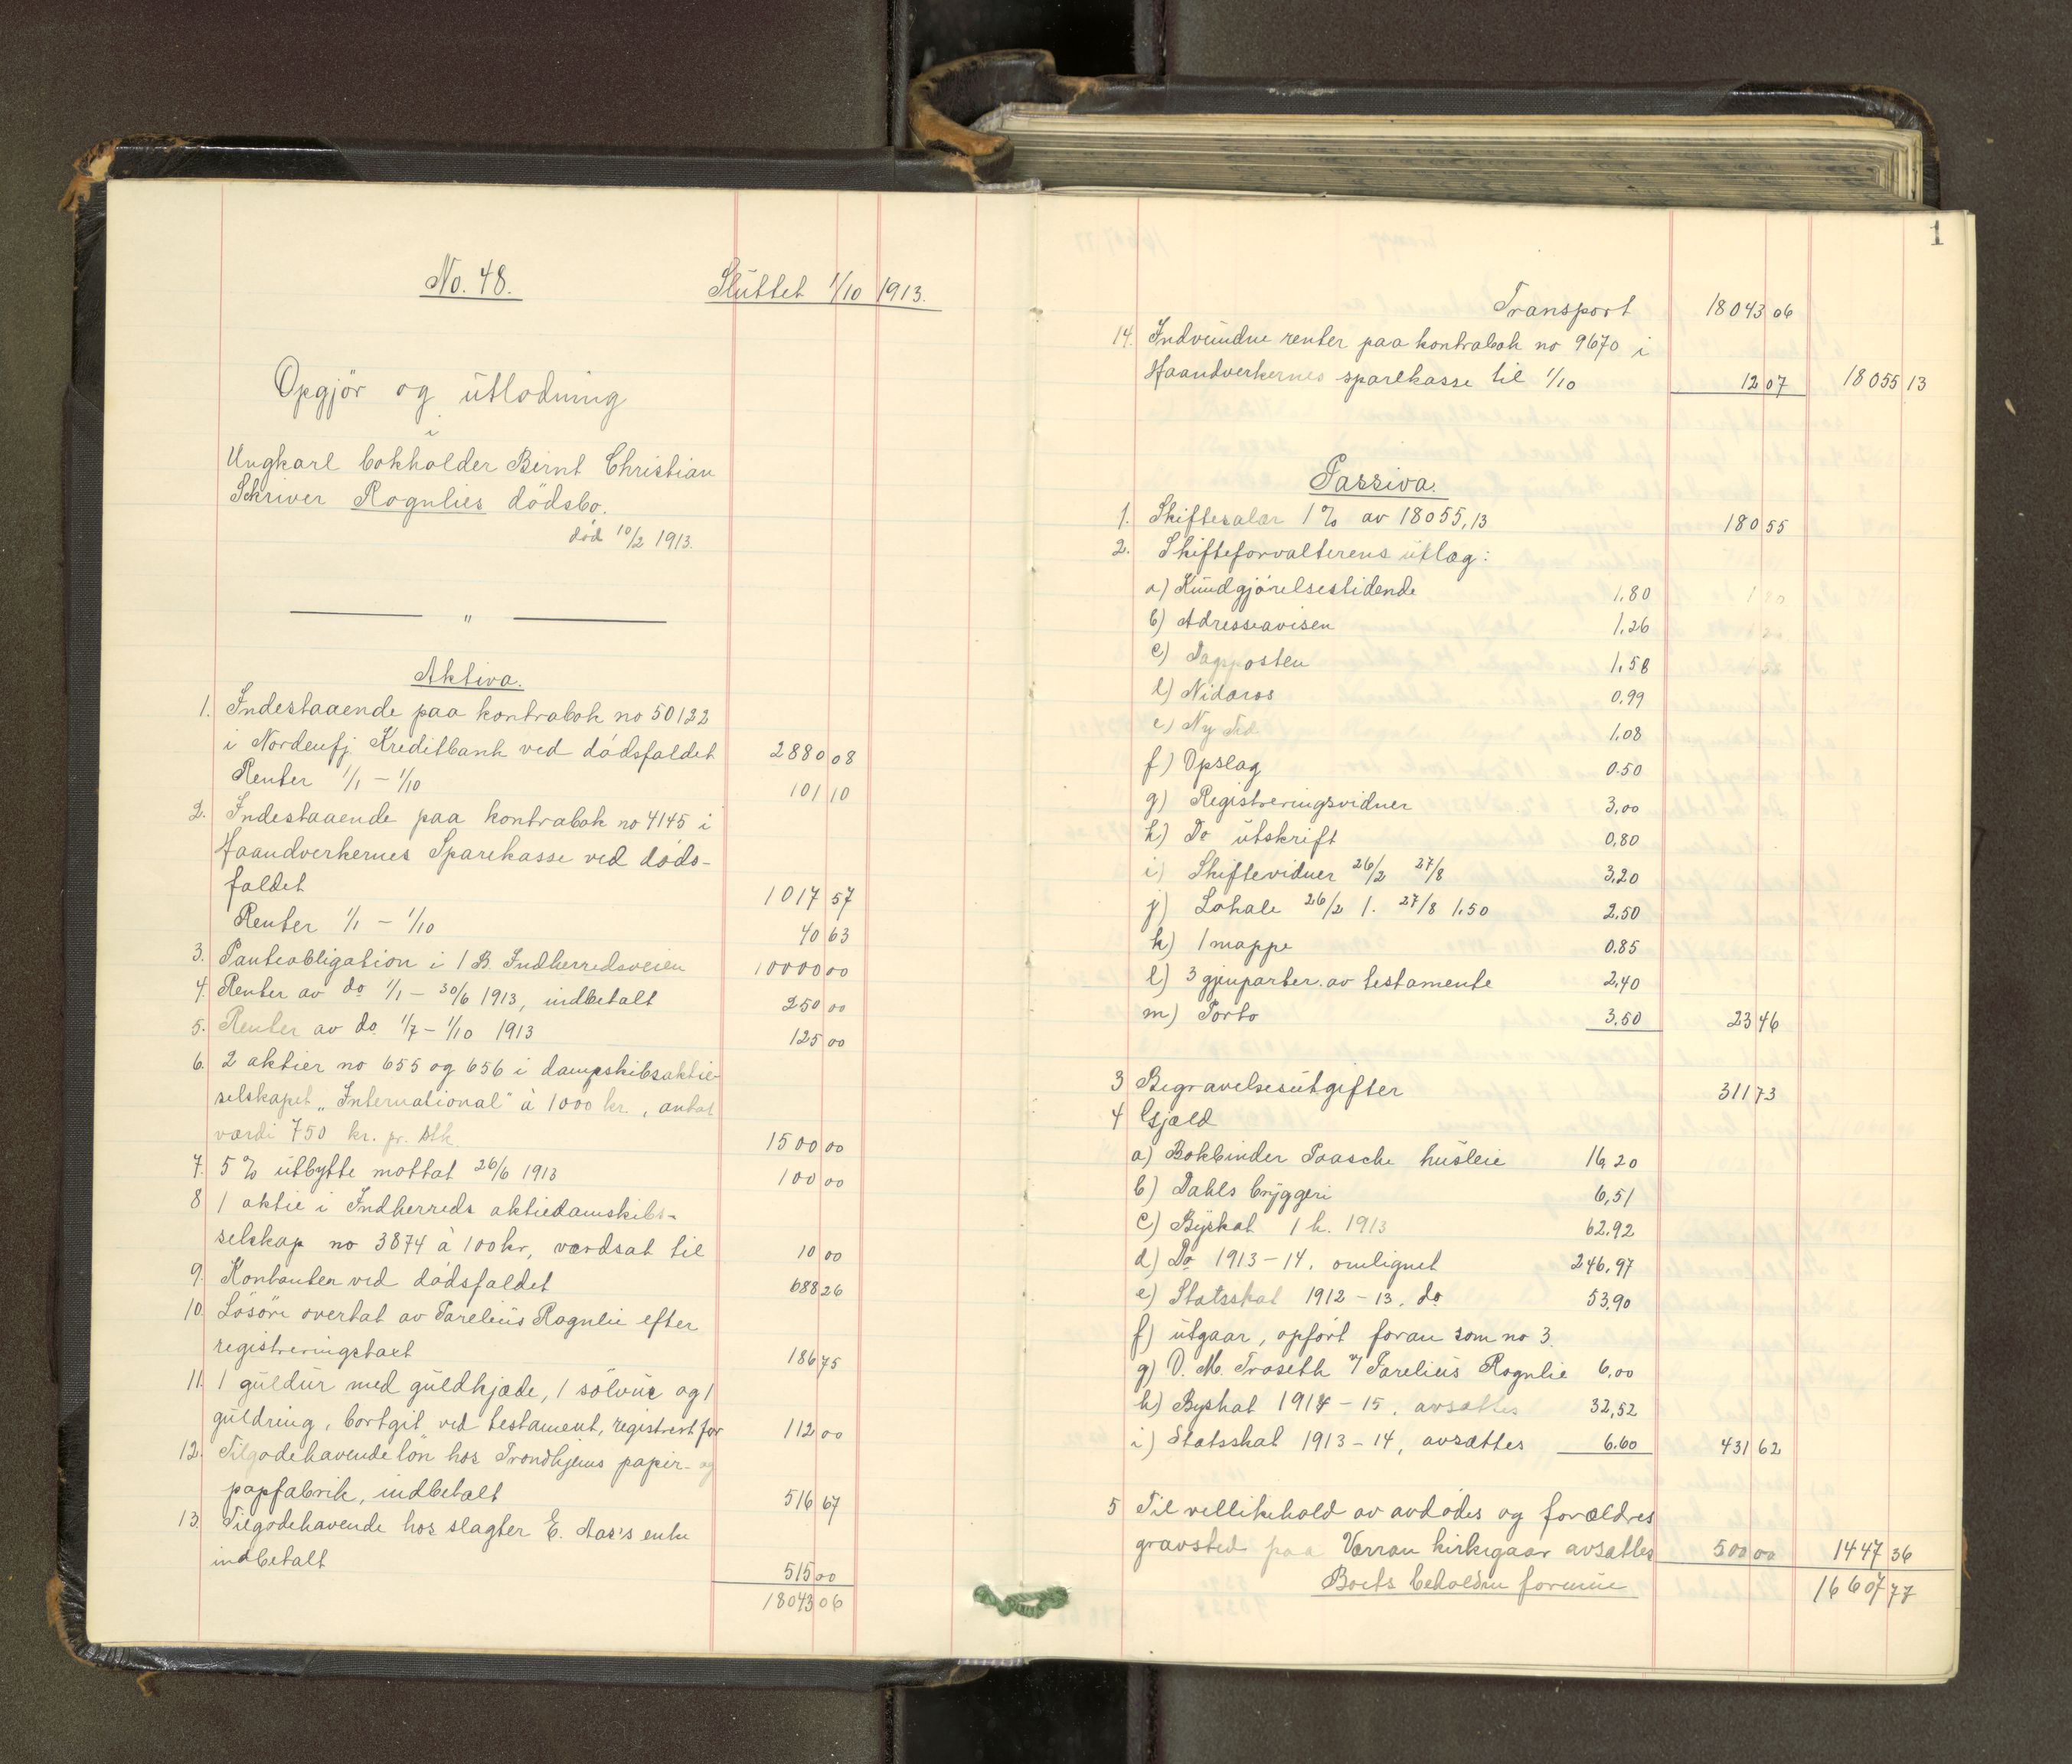 No. 48.
Sluttet 1/10 1913.
Opgjör og utlodning
i
Ungkarl bokholder Bernt Christian
Schriver Rognlies dödsbo.
död 10/2 1913.
"
Aktiva.
1. Indestaaende paa kontrabok no 50122
i Nordenfj. Kreditbank ved dödsfaldet 2880 08
Renter 1/1 - 1/10 101 10
2. Indestaaende paa kontrabok no 4145 i
Haandverkernes Sparekasse ved döds-
faldet 1017 57
Renter 1/1 - 1/10 40 63
3. Panteobligation i 1 B. Indherredsveien 10000 00
4. Renter av do 1/1 - 30/6 1913, indbetalt 250 00
5. Renter av do. 1/7 - 1/10 1913 125 00
6. 2 aktier no 655 og 656 i dampskibsaktie-
selskapet "International" à 1000 kr., antat
værdi 750 kr. pr. stk. 1500 00
7. 5 % utbytte mottat 26/6 1913 100 00
8 1 aktie i Indherreds aktiedamskibs-
selskap no 3874 à 100 kr, værdsat til 10 00
9. Kontanter ved dödsfaldet 688 26
10. Lösöre overtat av Parelius Rognlie efter
registreringstaxt 186 75
11. 1 guldur med guldkjæde, 1 sölvur og 1
guldring, bortgit ved testament, registrert for 112 00
12. Tilgodehavende lön hos Trondhjems papir- og
papfabrik, indbetalt 516 67
13. Tilgodehavende hos slagter E. Aas's enke
indbetalt 515 00
18043 06
1
Transport 18043 06
14. Indvundne renter paa kontrabok no 9670 i
Haandverkernes sparekasse til 1/10 12 07 18055 13
Passiva.
1. Skiftesalær 1 % av 18055,13 180 55
2. Skifteforvalterens utlæg:
a) Kundgjörelsestidende 1,80
b) Adresseavisen 1,26
c) Dagsposten 1,58
d) Nidaros 0,99
e) Ny Tid 1,08
f) Opslag 0.50
g) Registreringsvidner 3,00
h) Do utskrift 0,80
i) Skiftevidner 26/2 27/8 3,20
j) Lokale 26/2 1. 27/8 1.50 2,50
k) 1 mappe 0,85
l) 3 gjenparter av testamente 2,40
m) Porto 3,50 23 46
3 Begravelsesutgifter 311 73
4 Gjæld
a) Bokbinder Paasche husleie 16,20
b) Dahls bryggeri 6,51
c) Byskat 1 h. 1913 62,92
d) Do 1913 - 14, omlignet 246,97
e) Statsskat 1912 - 13, do 53,90
f) utgaar, opfört foran som no 3.
g) O. M. Troseth v/ Parelius Rognlie 6,00
h) Byskat 1914 - 15, avsættes 32,52
i) Statsskat 1913 - 14, avsættes 6.60 431 62
5 Til vellikehold av avdödes og forældres
gravsted paa Værran kirkegaar avsættes 500 00 1447 36
Boets beholdne formue 16607 77